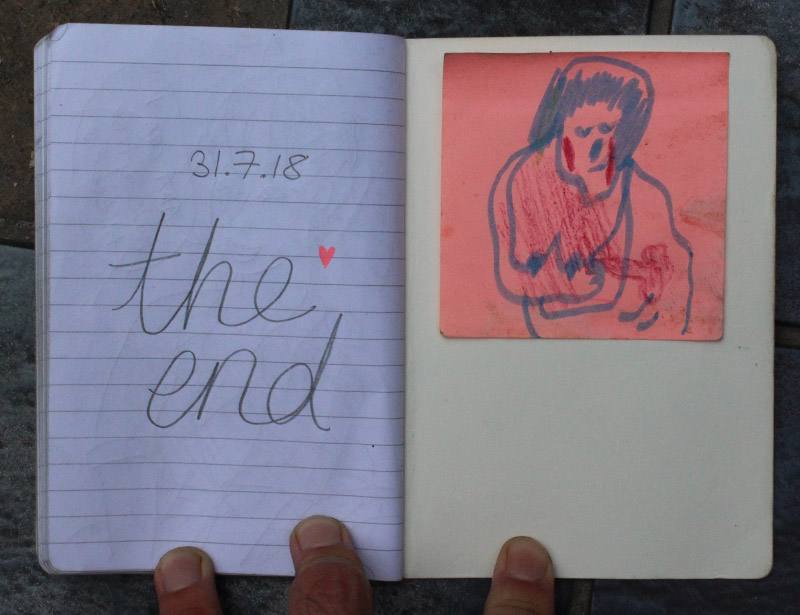 31.7.18
the
end